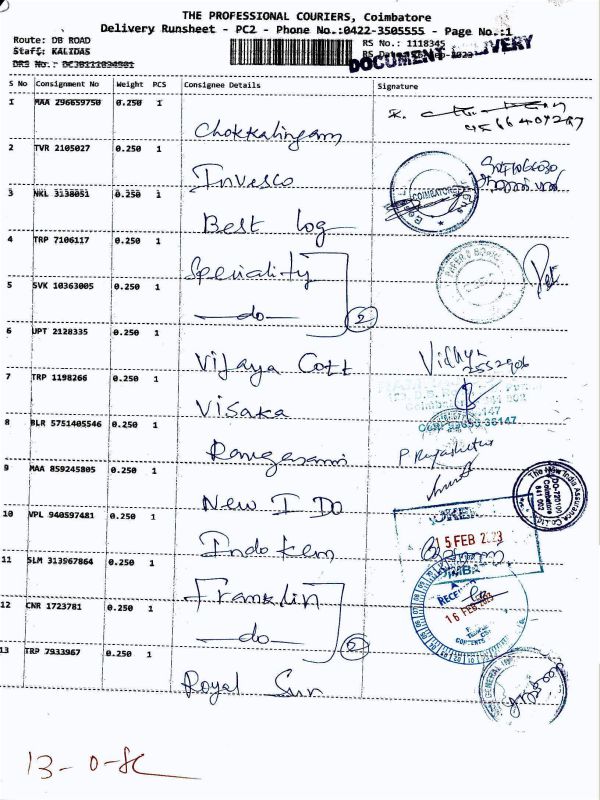 THE PROFESSIONAL COURIERS, Coimbatore
Delivery Runsheet - PC2 - Phone No.:0422-3505555 - Page No.:1
Route: DB ROAD
RS No.: 1118345
Staff: KALIDAS
DOCUMENT DELIVERY
S No Consignment No Weight PCS Consignee Details Signature
1 MAA 296659750 0.250 1 Chokkalingam
2 TVR 2105027 0.250 1 Invesco
3 NKL 3138051 0.250 1 Best log
4 TRP 7106117 0.250 1 Speciality
5 SVK 10363005 0.250 1 do 2
6 UPT 2128335 0.250 1 Vijaya Cott Vidhya 2552906
7 TRP 1198266 0.250 1 Visaka
8 BLR 5751405546 0.250 1 Rangasami
9 MAA 859245805 0.250 1 New I DO
The New India Assurance Co. Ltd. Coimbatore 641 002
10 VPL 940597481 0.250 1 Indo Kem
15 FEB 2023
11 SLM 313967864 0.250 1 Franklin
16 FEB 2023
12 CNR 1723781 0.250 1 do 2
13 TRP 7933967 0.250 1 Royal Sun
13-0-8c